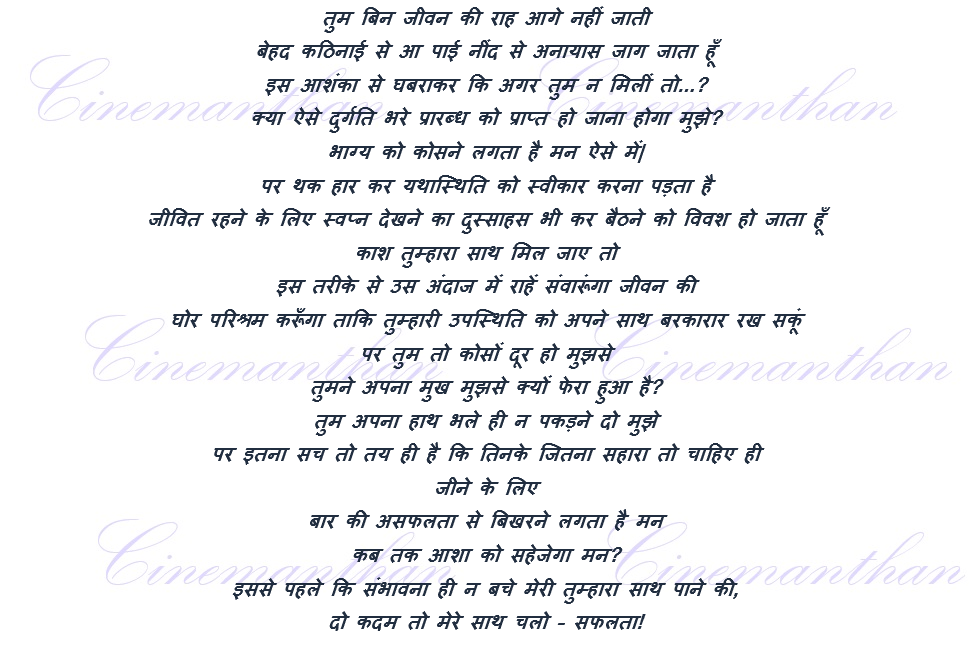 तुम बिन जीवन की राह आगे नहीं जाती
बेहद कठिनाई से आ पाई नींद से अनायास जाग जाता हूँ
इस आशंका से घबराकर कि अगर तुम न मिलीं तो...?
क्या ऐसे दुर्गति भरे प्रारब्ध को प्राप्त हो जाना होगा मुझे?
भाग्य को कोसने लगता है मन ऐसे में|
पर थक हार कर यथास्थिति को स्वीकार करना पड़ता है
जीवित रहने के लिए स्वप्न देखने का दुस्साहस भी कर बैठने को विवश हो जाता हूँ
काश तुम्हारा साथ मिल जाए तो
इस तरीके से उस अंदाज में राहें संवारूंगा जीवन की
घोर परिश्रम करूँगा ताकि तुम्हारी उपस्थिति को अपने साथ बरकारार रख सकूं
पर तुम तो कोसों दूर हो मुझसे
तुमने अपना मुख मुझसे क्यों फेरा हुआ है?
तुम अपना हाथ भले ही न पकड़ने दो मुझे
पर इतना सच तो तय ही है कि तिनके जितना सहारा तो चाहिए ही
जीने के लिए
बार की असफलता से बिखरने लगता है मन
कब तक आशा को सहेजेगा मन?
इससे पहले कि संभावना ही न बचे मेरी तुम्हारा साथ पाने की,
दो कदम तो मेरे साथ चलो - सफलता!
Cinemanthan Cinemanthan
Cinemanthan Cinemanthan
Cinemanthan Cinemanthan